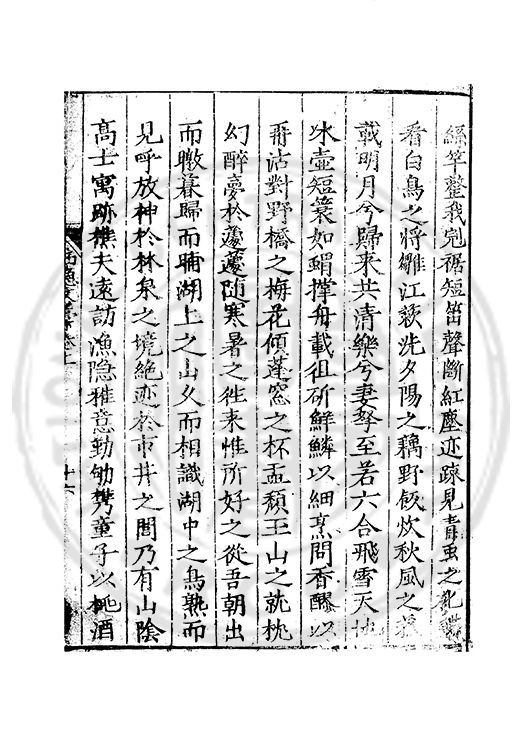 絲竿䥗我兠裾短笛聲斷紅塵迹踈見青虫之化
看白鳥之將雛江蔌洗夕陽之藕野飯炊秋風之
載明月兮歸来共清樂兮妻孥至若六合飛雪天地
氷壺短簑如蝟撑舟載徂斫鮮鱗以細烹問香醪以
再沽對野橋之梅花傾蓬窓之杯盂頹玉山之就枕
幻醉夢於蘧蘧随寒暑之徃来惟所好之從吾朝出
而暾暮歸而晡湖上之山久而相識湖中之鳥熟而
見呼放神於林泉之境絶迹於市井之閭乃有山陰
高士寓跡樵夫逺訪漁隐雅意勤劬𢹂童子以挑酒